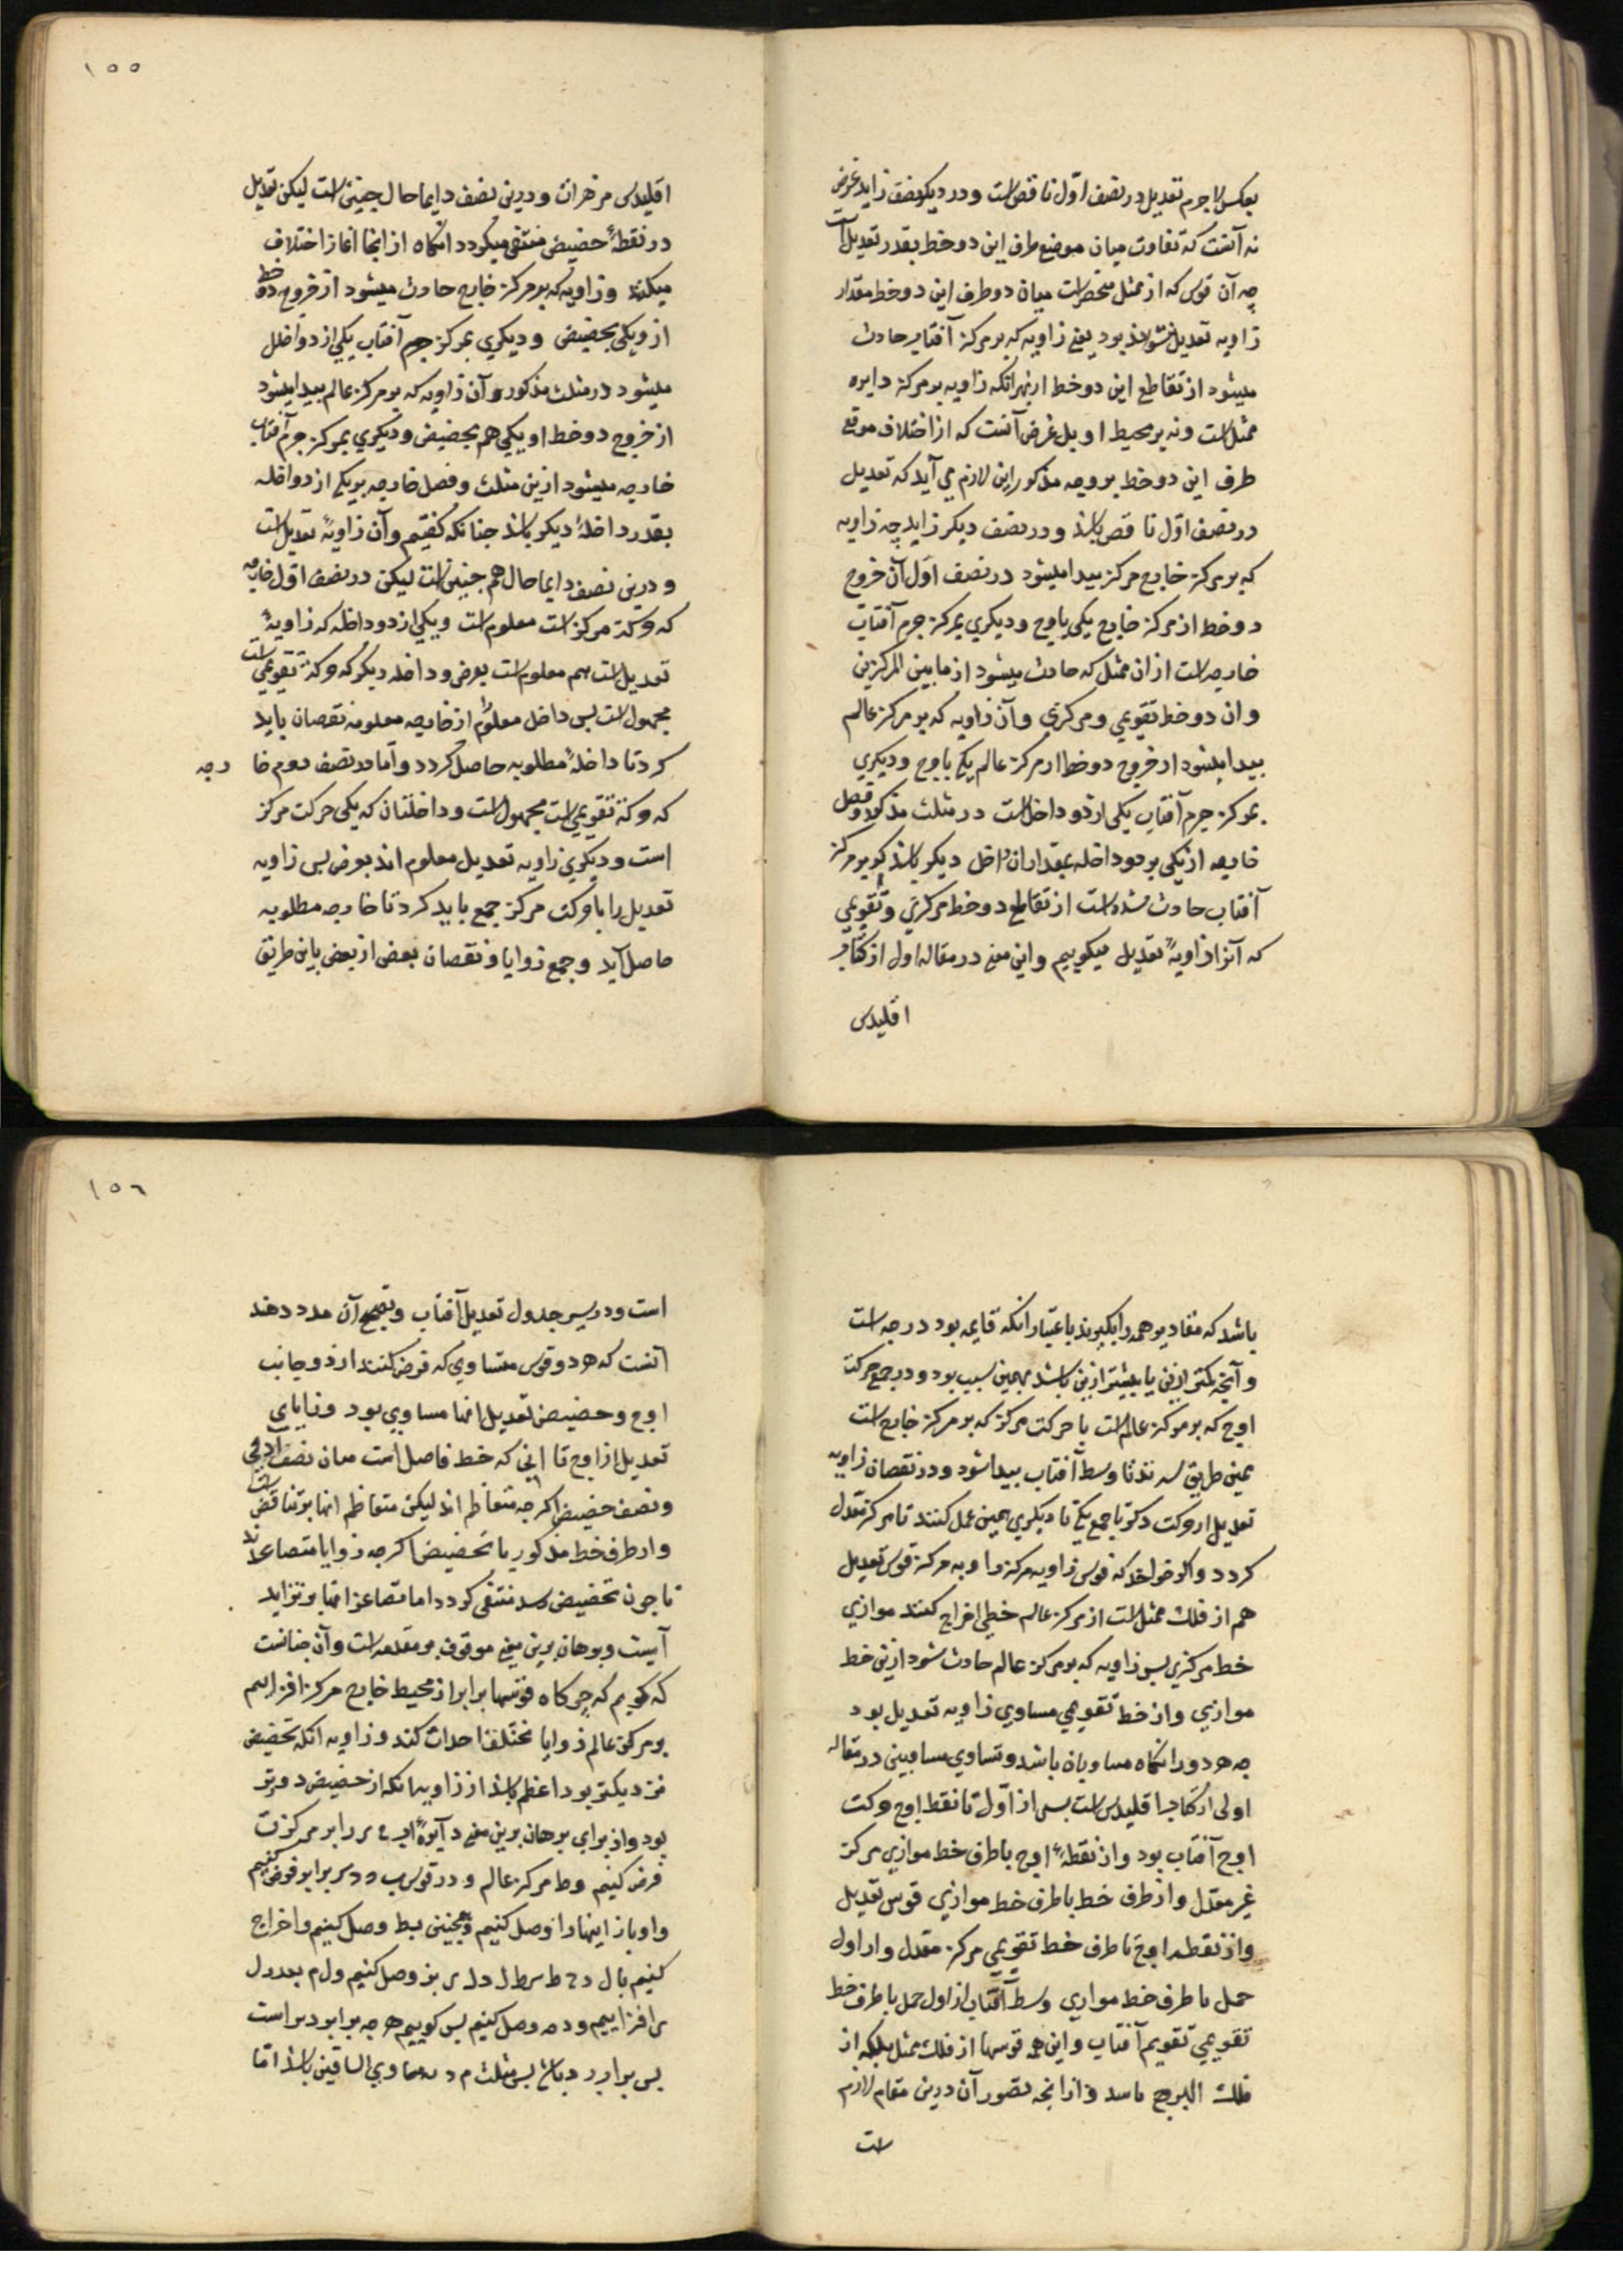 بعکس لاجرم تعدیل در نصف اول ناقص است و در دیگر نصف زاید غرض
نه آنست که تفاوت میان موضع طرف این دو خط بقدر تعدیل است
چه آن قوس که از ممثل منحصر است میان دو طرف این دو خط مقدار
زاویه تعدیل نتواند بود یعنی زاویه که بر مرکز آفتاب حادث
میشود از تقاطع این دو خط از بهر آنکه زاویه بر مرکز دایره
ممثل است و نه بر محیط او بل غرض آنست که از اختلاف موقع
طرف این دو خط بر وجه مذکور این لازم می آید که تعدیل
در نصف اول ناقص باشد و در نصف دیگر زاید چه زاویه
که بر مرکز خارج مرکز پیدا میشود در نصف اول آن خروج
دو خط از مرکز خارج یکی باوج و دیگری بمرکز جرم آفتاب
خارجه است از ان ممثل که حادث میشود از مابین المرکزین
و ان دو خط تقویمی و مرکزی و آن زاویه که بر مرکز عالم
پیدا میشود از خروج دو خط از مرکز عالم یکی باوج و دیگری
بمرکز جرم آفتاب یکی از دو داخل است در مثلث مذکور و فصل
خارجه از یکی بر دو داخله بمقدار ان داخل دیگر باشد که بر مرکز
آفتاب حادث شده است از تقاطع دو خط مرکزی و تقویمی
که آنرا زاویهٔ تعدیل میگوییم و این معنی در مقاله اول از کتاب
اقلیدس
۱۵۵
اقلیدس مبرهن است و درین نصف دایما حال چنین است لیکن تعدیل
در نقطهٔ حضیض منتفی میگردد انگاه از انجا اغاز اختلاف
میکند و زاویه که بر مرکز خارج حادث میشود از خروج دو خط
از و یکی بحضیض و دیگری بمرکز جرم آفتاب یکی از دو داخل
میشود در مثلث مذکور و آن زاویه که بر مرکز عالم پیدا میشود
از خروج دو خط او یکی هم بحضیض و دیگری بمرکز جرم آفتاب
خارجه میشود ازین مثلث و فصل خارجه بر یکی از دو داخله
بقدر داخلهٔ دیگر باشد چنانکه گفتیم و آن زاویهٔ تعدیل است
و درین نصف دایما حال هم چنین است لیکن در نصف اول خارجه
که حرکت مرکز است معلوم است و یکی از دو داخله که زاویهٔ
تعدیل است هم معلوم است بعرض و داخله دیگر که حرکة تقویمی است
مجهول است پس داخل معلوم از خارجه معلومه نقصان باید
کرد تا داخلهٔ مطلوبه حاصل گردد و اما در نصف دوم خا رجه
که حرکة تقویمی است مجهول است و داخلتان که یکی حرکت مرکز
است و دیگری زاویه تعدیل معلوم اند بعرض پس زاویه
تعدیل را با حرکت مرکز جمع باید کرد تا خارجه مطلوبه
حاصل آید و جمع زوایا و نقصان بعض از بعض باین طریق
باشد که مقادیر همه را بگیرند باعتبار آنکه قایمه نود درجه است
و آنچه کمتر ازین یا بیشتر ازین باشد بهمین سبب بود و در جمع حرکت
اوج که بر مرکز عالم است با حرکت مرکز که بر مرکز خارج است
همین طریق سپرند تا وسط آفتاب پیدا شود و در نقصان زاویه
تعدیل از حرکت مرکز یا جمع یکی با دیگری همین عمل کنند تا مرکز معدل
گردد و اگر خواهند که قوس زاویه مرکز و زاویه مرکز قوس تعدیل
هم از فلک ممثل است از مرکز عالم خطی اخراج کنند موازی
خط مرکزی پس زاویه که بر مرکز عالم حادث شود ازین خط
موازی و از خط تقویمی مساوی زاویه تعدیل بود
چه هر دو را انگاه مساویان باشد و تساوی مساویین در مقاله
اولی از کتاب اقلیدس است پس از اول تا نقطه اوج حرکت
اوج آفتاب بود و از نقطهٔ اوج با طرف خط موازی مرکز
غیر معدل و از طرف خط با طرف خط موازی قوس تعدیل
و از نقطه اوج تا طرف خط تقویمی مرکز معدل و از اول
حمل تا طرف خط موازی وسط آفتاب از اول حمل با طرف خط
تقویمی تقویم آفتاب و این همه قوسها از فلک ممثل بلکه از
فلک البروج باشد و از انچه تصور آن درین مقام لازم
است
۱۵۶
است و در سر جدول تعدیل آفتاب و تصحیح آن مدد دهند
آنست که هر دو قوس متساوی که فرض کنند از دو جانب
اوج و حضیض تعدیل انها مساوی بود و زوایای
تعدیل از اوج تا انی که خط فاصل است میان نصف اوجی
و نصف حضیض اگرچه متعاظم اند لیکن تعاظم انها بر تناقص است
و از طرف خط مذکور تا حضیض اگرچه زوایا متصاغر اند
تا چون بحضیض رسد منتفی گردد اما تصاغر انها بر تزاید
است و برهان برین معنی موقوف بر مقدمه است و آن چنانست
که گویم که هر گاه قوسها برابر از محیط خارج مرکز افرازیم
بر مرکز عالم زوایا مختلفه احداث کند و زاویه انکه بحضیض
نزدیکتر بود اعظم باشد از زاویه انکه از حضیض دورتر
بود و از برای برهان برین معنی دایرهٔ
فرض کنیم و ط مرکز عالم و دو قوس ب د د ر برابر فرض کنیم
وصل کنیم و همچنین بط وصل کنیم و اخراج
کنیم بال و وصل کنیم و ل م بعد دل
افزاییم و د م وصل کنیم پس گوییم هرچه برابر د ر است
پس برابر باشد پس مثلث م د مساوی الساقین باشد اما